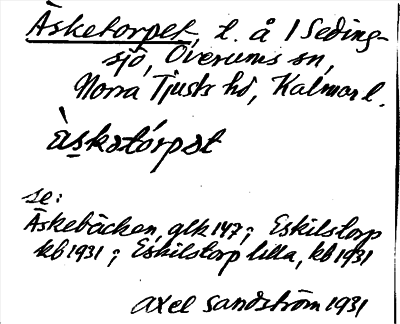 Äsketorpet, t. å 1 Seding-
sjö, Överums sn,
Norra Tjusts hd, Kalmar l.
ä̀skətórpət
se:
Äskebäcken, glk 147; Eskilstorp
kb 1931; Eskilstorp lilla, kb 1931
Axel Sandström 1931